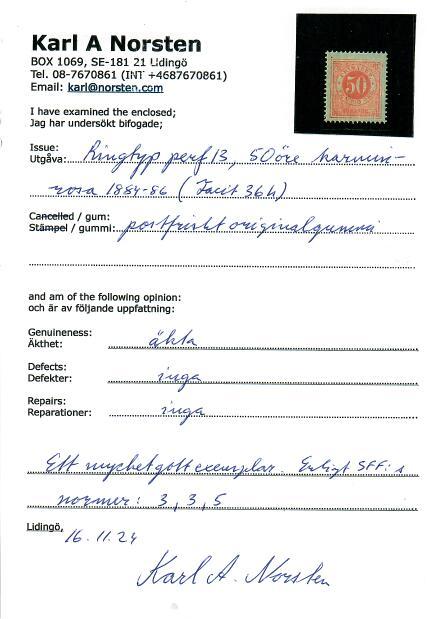 Karl A Norsten
BOX 1069, SE-181 21 Lidingö
Tel. 08-7670861 (INT +4687670861)
Email: karl@norsten.com
50
I have examined the enclosed;
Jag har undersökt bifogade;
Issue:
Utgåva: Ringtyp perf 13, 50 öre karmin-
rosa 1884-86 (Facit 36h)
Cancelled / gum:
Stämpel / gummi: postfriskt originalgummi
and am of the following opinion:
och är av följande uppfattning:
Genuineness:
Äkthet: äkta
Defects:
Defekter: inga
Repairs:
Reparationer: inga
Ett mycket gott exemplar. Enligt SFF:s
normer: 3, 3, 5
Lidingö, 16.11.24
Karl A. Norsten